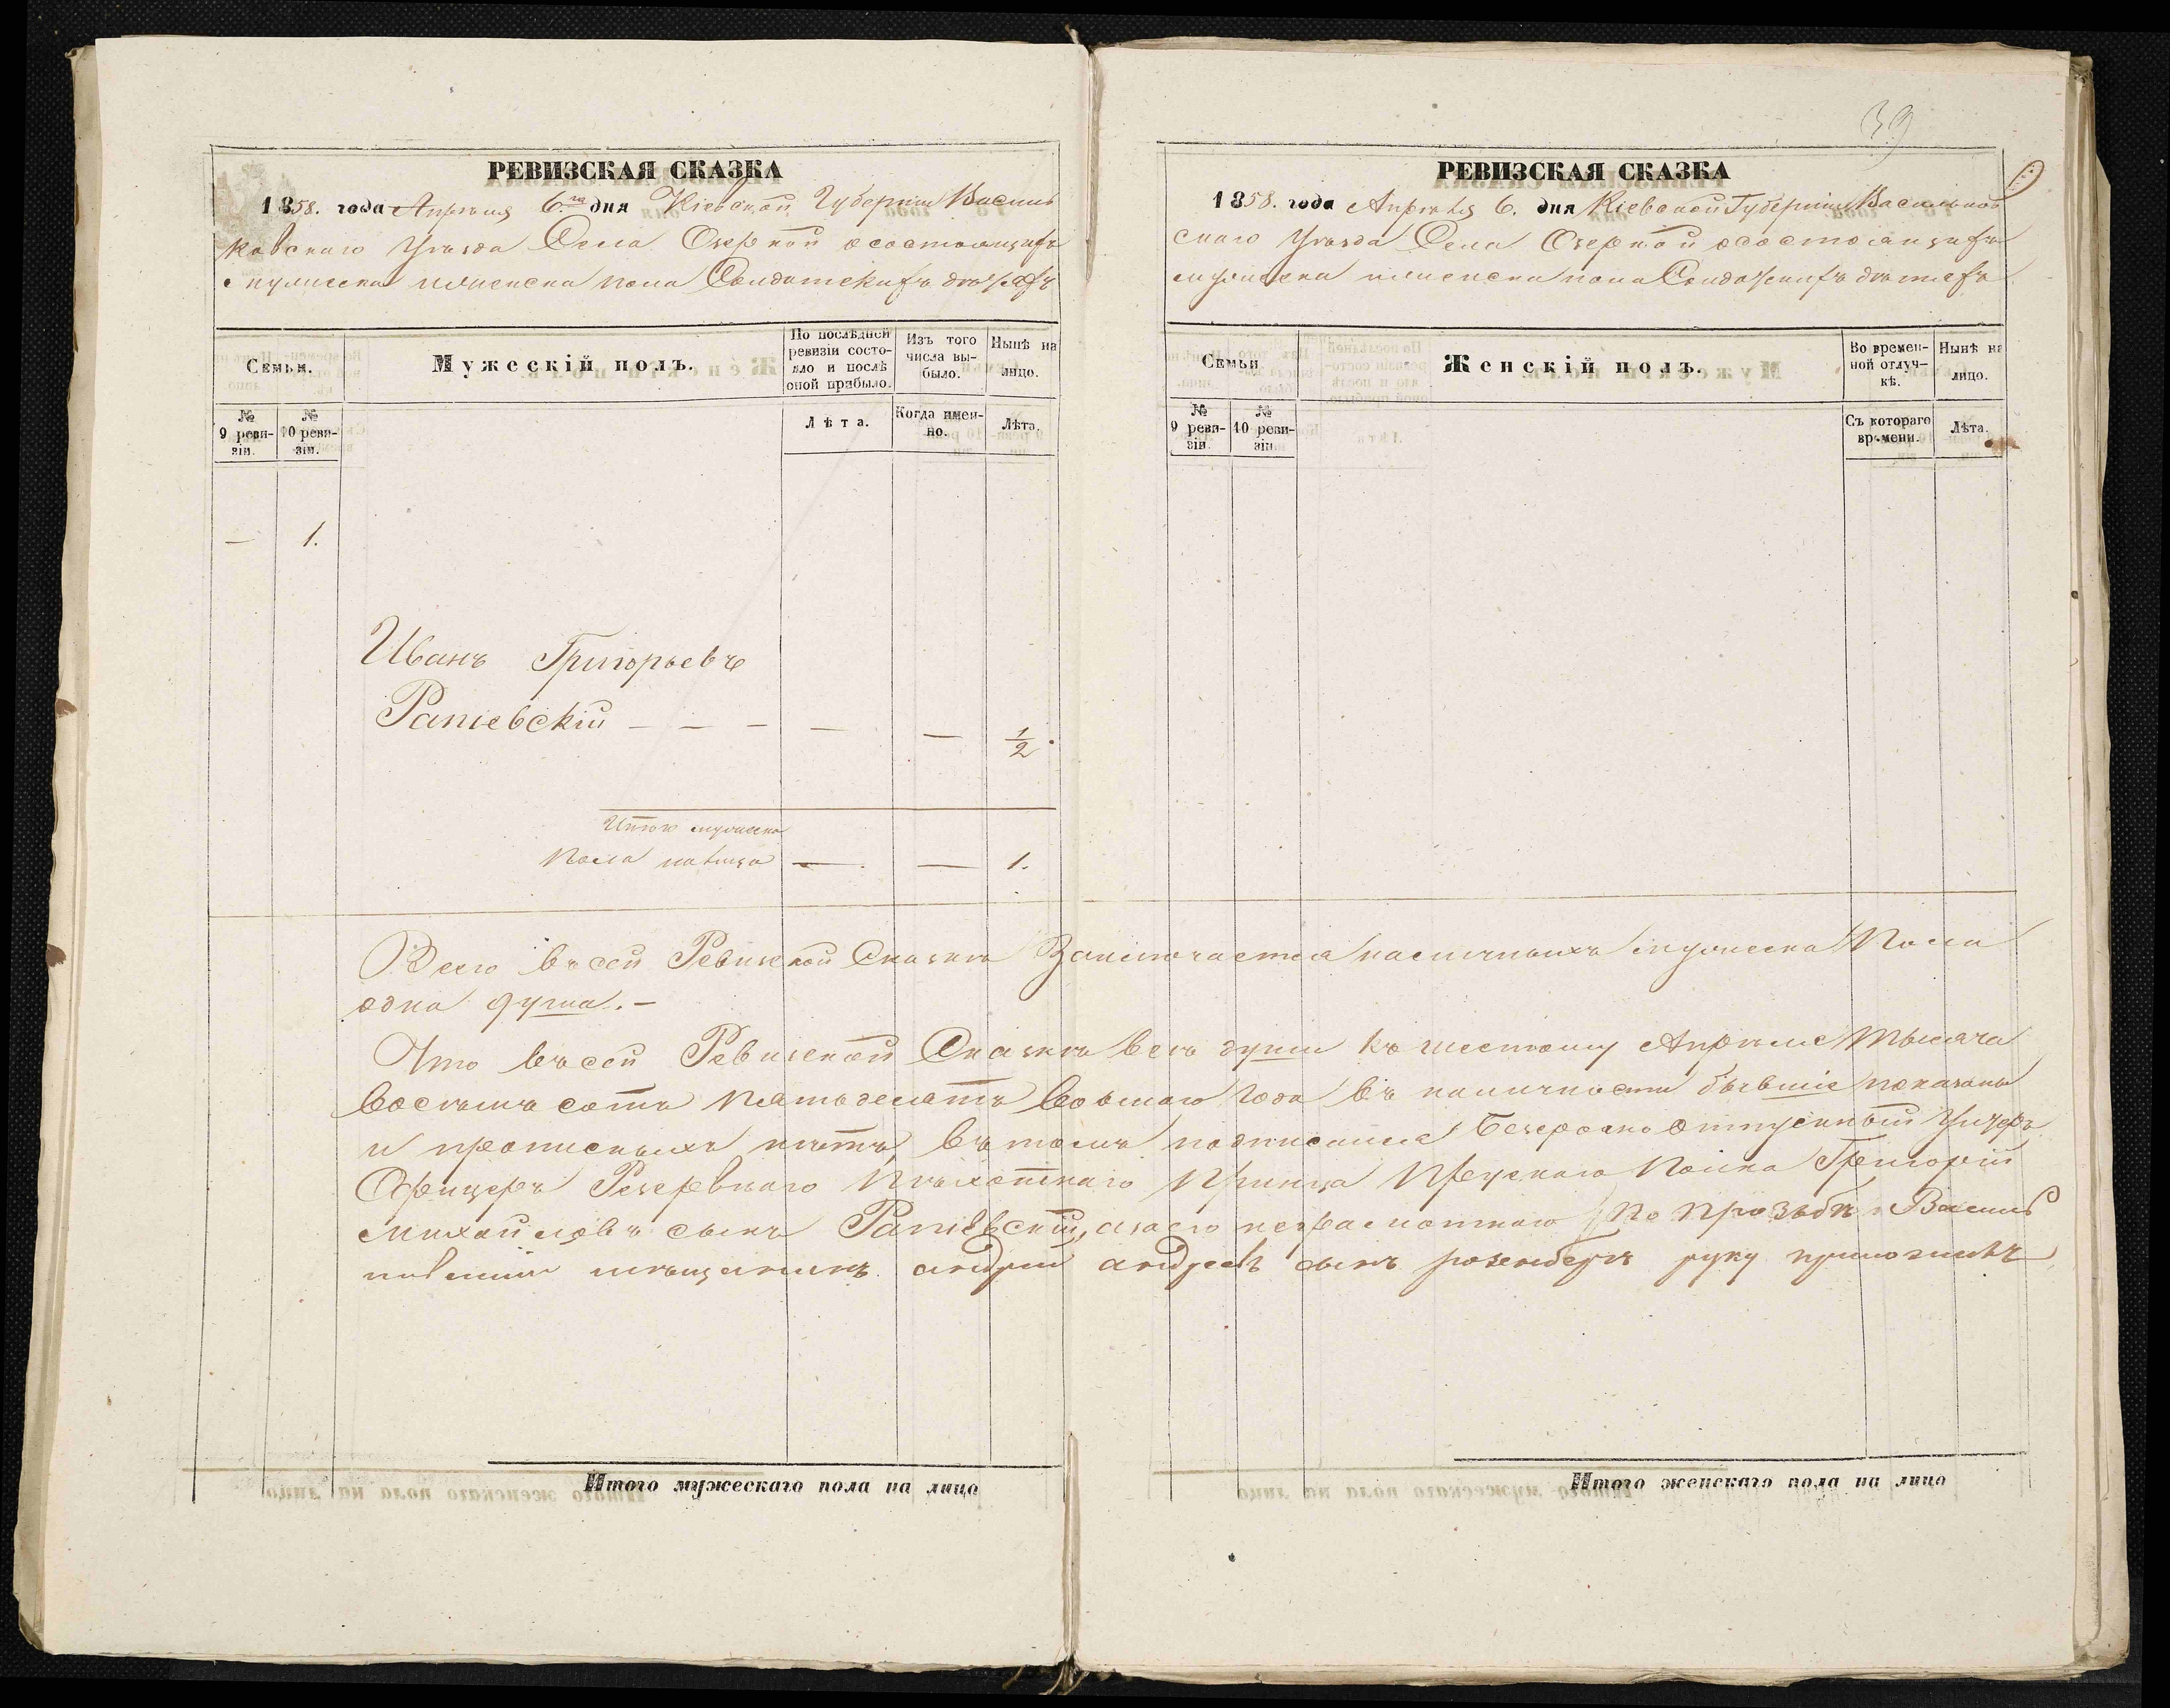 РЕВИЗСКАЯ СКАЗКА
1858. года Апрѣля 6.го дня Кіевской Губерніи Василь
ковскаго Уѣзда Села Озерной осостоящихъ
мужеска иженска пола Солдатскихъ дѣтяхъ
Семьи.
Мужескій полъ.
По послѣдней ревизіи состояло и послѣ оной прибыло.
Изъ того числа выбыло.
Нынѣ на лицо.
№ 9 ревизіи.
№ 10 ревизіи.
Лѣта.
Когда именно.
Лѣта.
— 1.
Иванъ Григорьевъ
Рапіевскій — — — — — 1/2.
Итого мужеска
пола налицо — — 1.
39
РЕВИЗСКАЯ СКАЗКА
1858. года Апрѣля 6. дня Кіевской Губерніи Васильков
скаго Уѣзда Села Озерной осостоящихъ
мужеска иженска пола Солдатскихъ дѣтехъ
Семьи
Женскій полъ.
Во временной отлучкѣ.
Нынѣ на лицо.
№ 9 ревизіи.
№ 10 ревизіи
Съ котораго времени.
Лѣта.
Всего въ сей Ревизской Сказкѣ Заключается наличныхъ мужеска Пола
одна душа.—
Что въ сей Ревизской Сказкѣ всѣ души къ шестому Апрѣле Тысяча
восемъ сотъ Пятьдесятъ восмаго Года въ наличности бывшіе показаны
и прописныхъ нѣтъ, въ томъ подписался Безсрочно отпускный Унтеръ
Офицеръ Резервнаго Пѣхотнаго Принца Прускаго Полка Григорій
Михайловъ сынъ Рапіевскій, азаего неграмотного По прозьбѣ Василь
ковскій мѣщанинъ андрей андреевъ сынъ розенбергъ руку приложилъ
Итого мужескаго пола на лицо
Итого женскаго пола на лицо